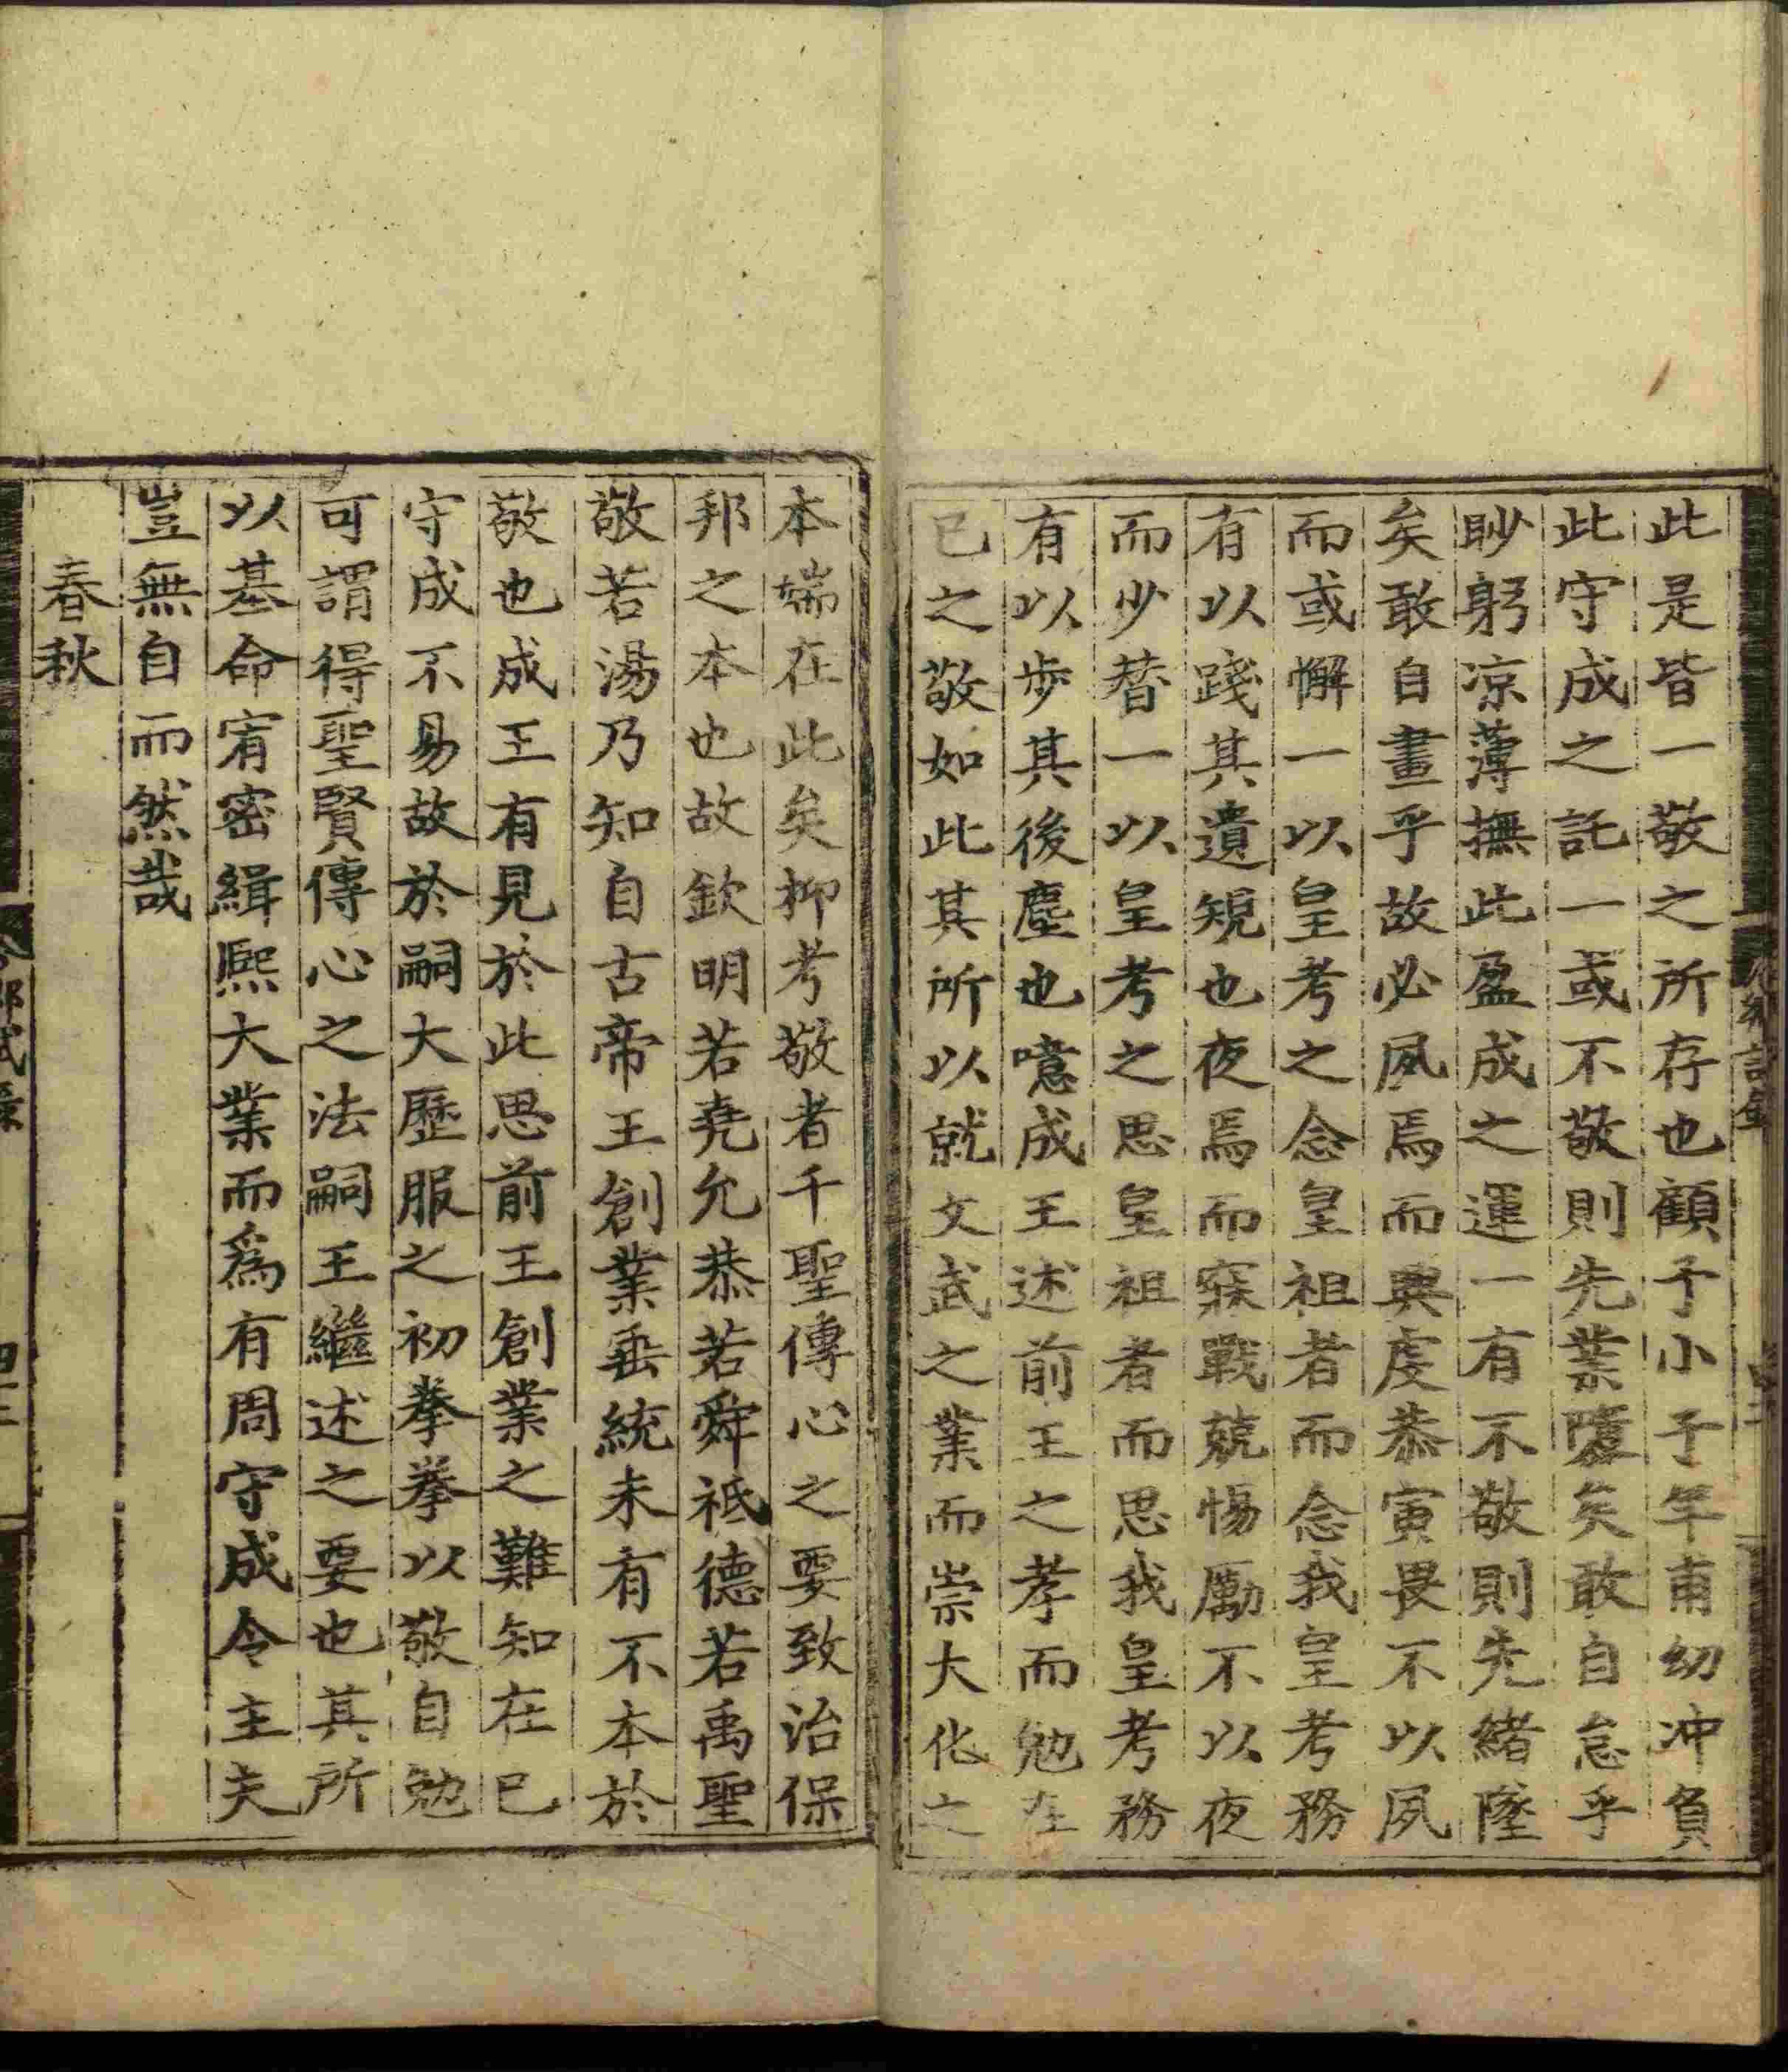 此是皆一敬之所存也顧予小子年甫幼冲負
此守成之託一或不敬則先業隳矣敢自怠乎
眇躬凉薄撫此盈成之運一有不敬則先緒墜
矣敢自畫乎故必夙焉而興虔恭寅畏不以夙
而或懈一以皇考之念皇祖者而念我皇考務
有以踐其遺䂓也夜焉而寐戰兢惕勵不以夜
而少替一以皇考之思皇祖者而思我皇考務
有以步其後塵也噫成王述前王之孝而勉在
已之敬如此其所以就文武之業而崇大化之
本端在此矣抑考敬者千聖傳心之要致治保
邦之本也故欽明若堯允恭若舜祗德若禹聖
敬若湯乃知自古帝王創業垂統未有不本於
敬也成王有見於此思前王創業之難知在已
守成不易故於嗣大歷服之初拳拳以敬自勉
可謂得聖賢傳心之法嗣王繼述之要也其所
以基命宥密緝熙大業而爲有周守成令主夫
豈無自而然哉
春秋